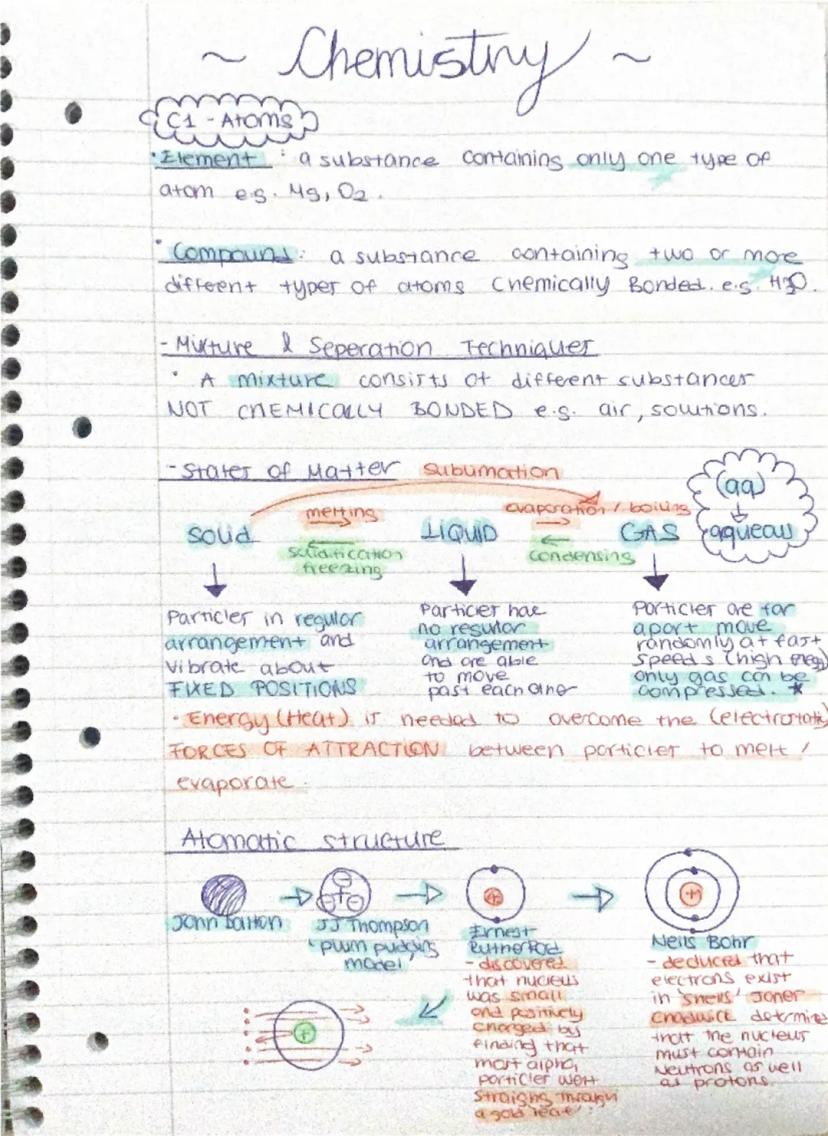 ~ Chemistry ~
C1 - Atoms
• Element : a substance containing only one type of
atom e.g. Mg, O2.
• Compound : a substance containing two or more
different types of atoms Chemically Bonded. e.g. H2O.
- Mixture & Seperation Techniques
• A mixture consists of different substances
NOT CHEMICALLY BONDED e.g. air, solutions.
- States of Matter
sublimation
(aq)
↓
aqueous
melting
evaporation / boiling
solid
LIQUID
GAS
solidification
freezing
condensing
Particles in regular
arrangement and
vibrate about
FIXED POSITIONS
Particles have
no regular
arrangement
and are able
to move
past each other
Particles are far
apart move
randomly at fast
speeds (high energy)
only gas can be
compressed. *
• Energy (Heat) is needed to overcome the (electrostatic)
FORCES OF ATTRACTION between particles to melt /
evaporate.
Atomatic structure
John Dalton
JJ Thompson
'plum pudding
model'
Ernest
Rutherford
- discovered
that nucleus
was small
and positively
charged by
finding that
most alpha
particles went
straight through
a gold leaf.
Neils Bohr
- deduced that
electrons exist
in 'shells' James
Chadwick determine
that the nucleus
must contain
Neutrons as well
as protons.